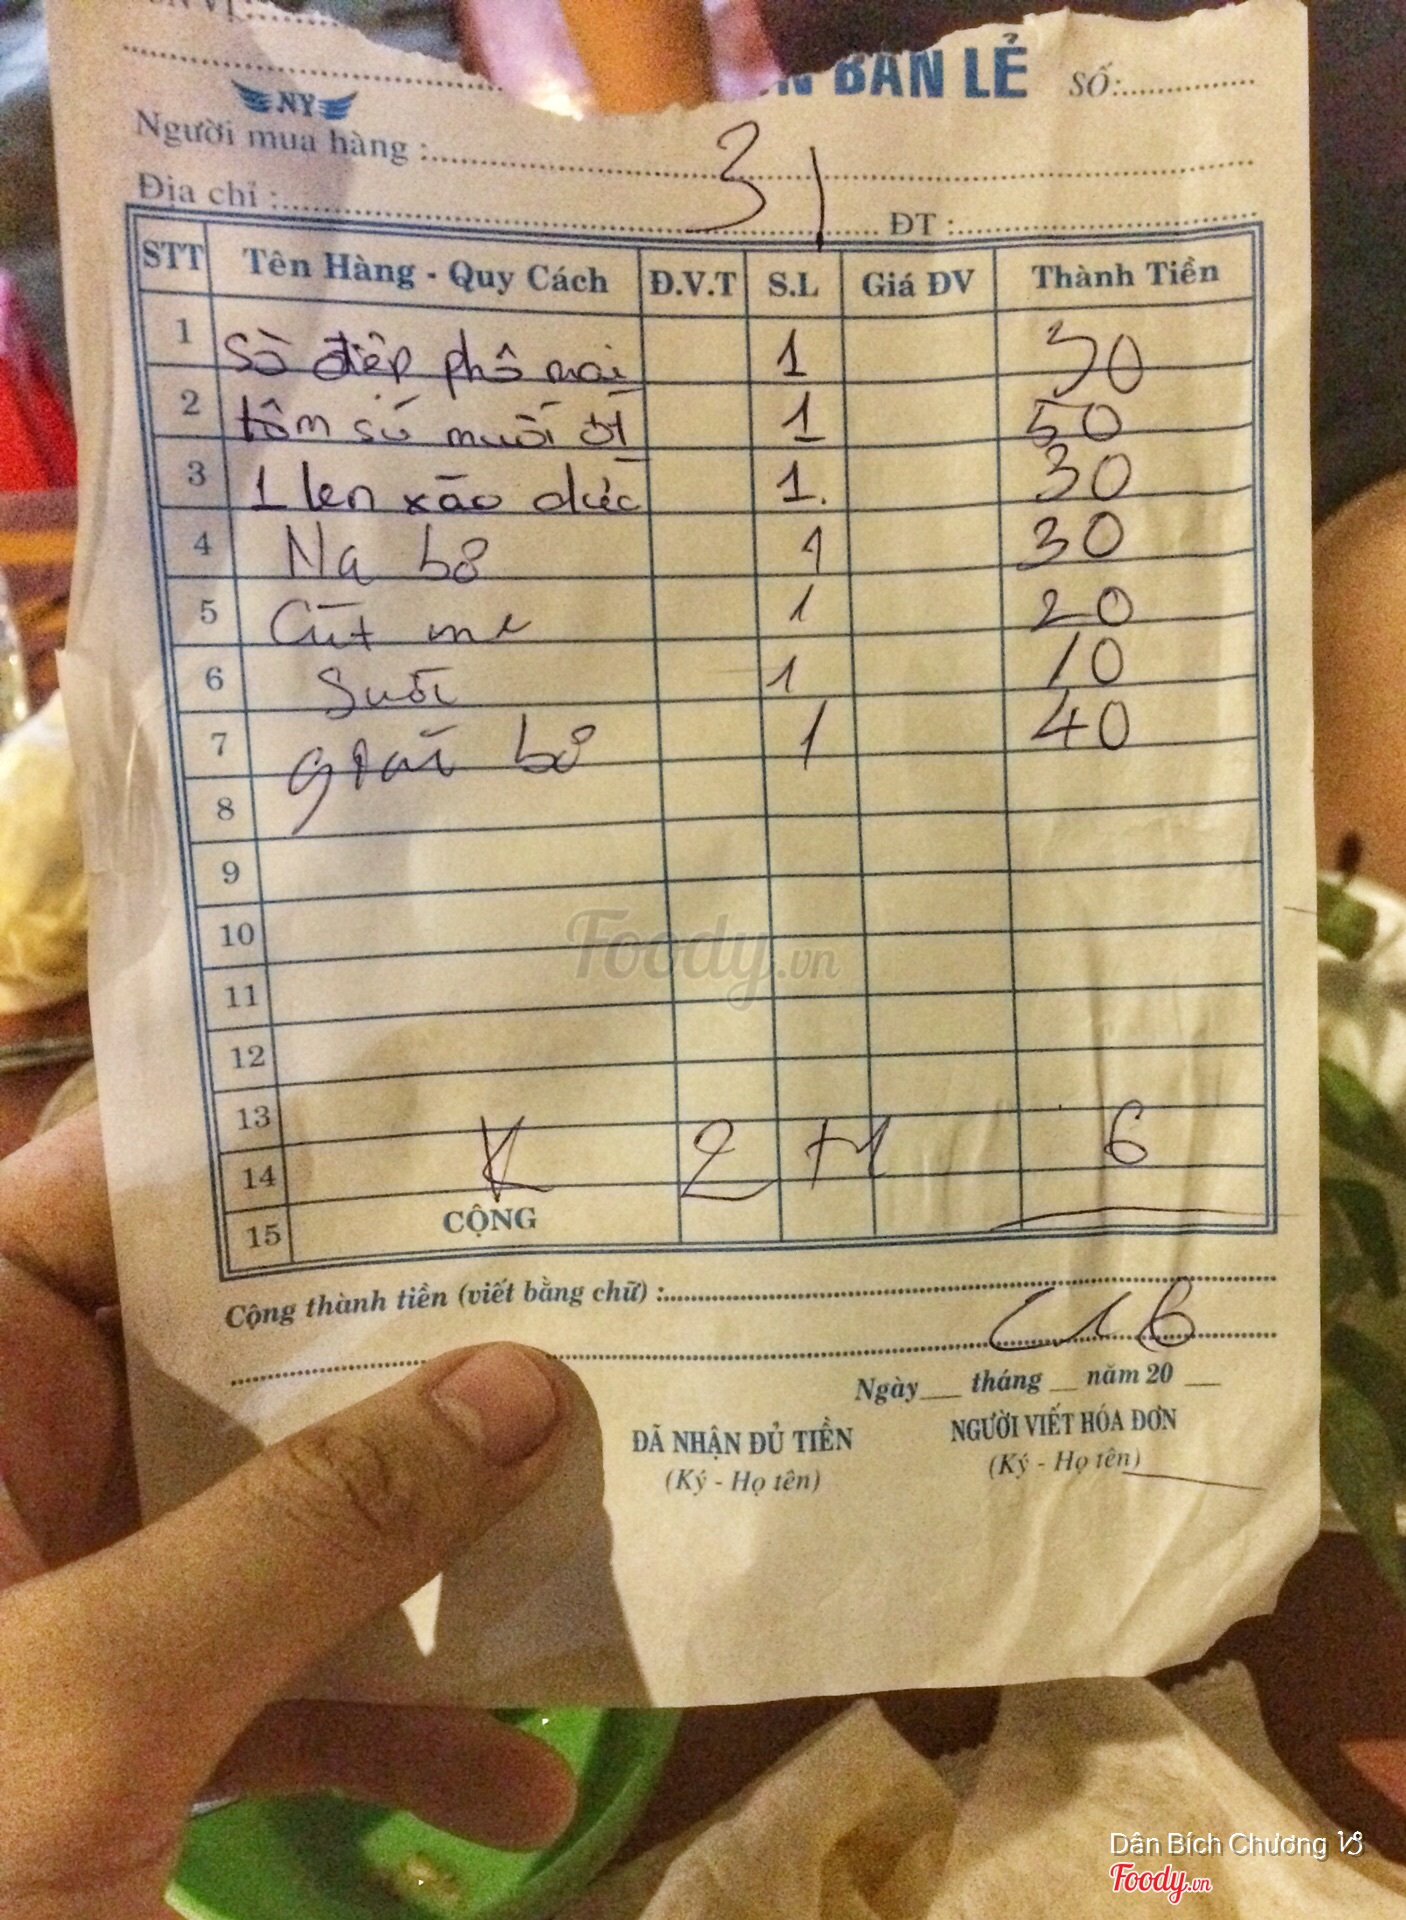 ƠN VỊ:
N BÁN LẺ SỐ:
NY
Người mua hàng :
31
Địa chỉ : ĐT :
STT Tên Hàng - Quy Cách Đ.V.T S.L Giá ĐV Thành Tiền
1 Sò điệp phô mai 1 30
2 tôm sú muối ớt 1 50
3 1 len xào dừa 1. 30
4 Na bò 1 30
5 Cút me 1 20
6 Suối 1 10
7 giái bò 1 40
8
9
10
11
12
13
14 K 2 H 6
15 CỘNG
Cộng thành tiền (viết bằng chữ) :
216
Ngày __ tháng __ năm 20 __
ĐÃ NHẬN ĐỦ TIỀN NGƯỜI VIẾT HÓA ĐƠN
(Ký - Họ tên) (Ký - Họ tên)
Foody.vn
Dân Bích Chương
Foody.vn